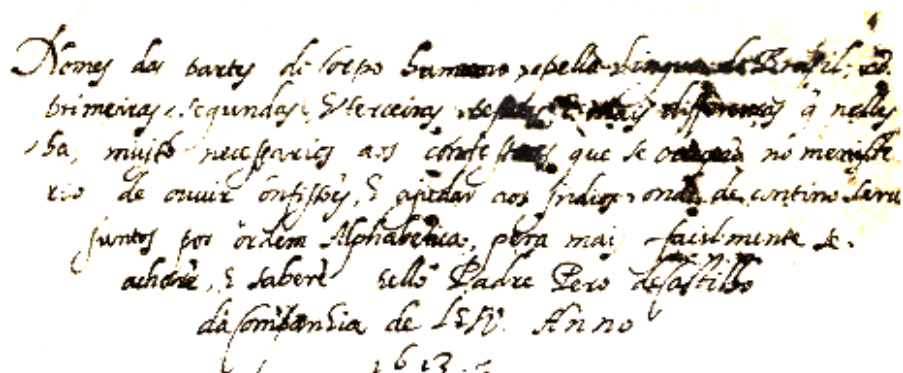 Nomes das partes do corpo humano, pella lingua do Brasil, cõ
primeiras, segundas, & terceiras & mais differenças q̃ nellas
ha, muito necessarios aos confessores que se occupão no ministe
rio de ouuir confissões, & ajudar aos Indios onde de contino serue
juntos por ordem Alphabetica, pera mais facilmente se
acharẽ, & saberẽ pello Padre Pero de Castilho
da Companhia de IESV. Anno
1613